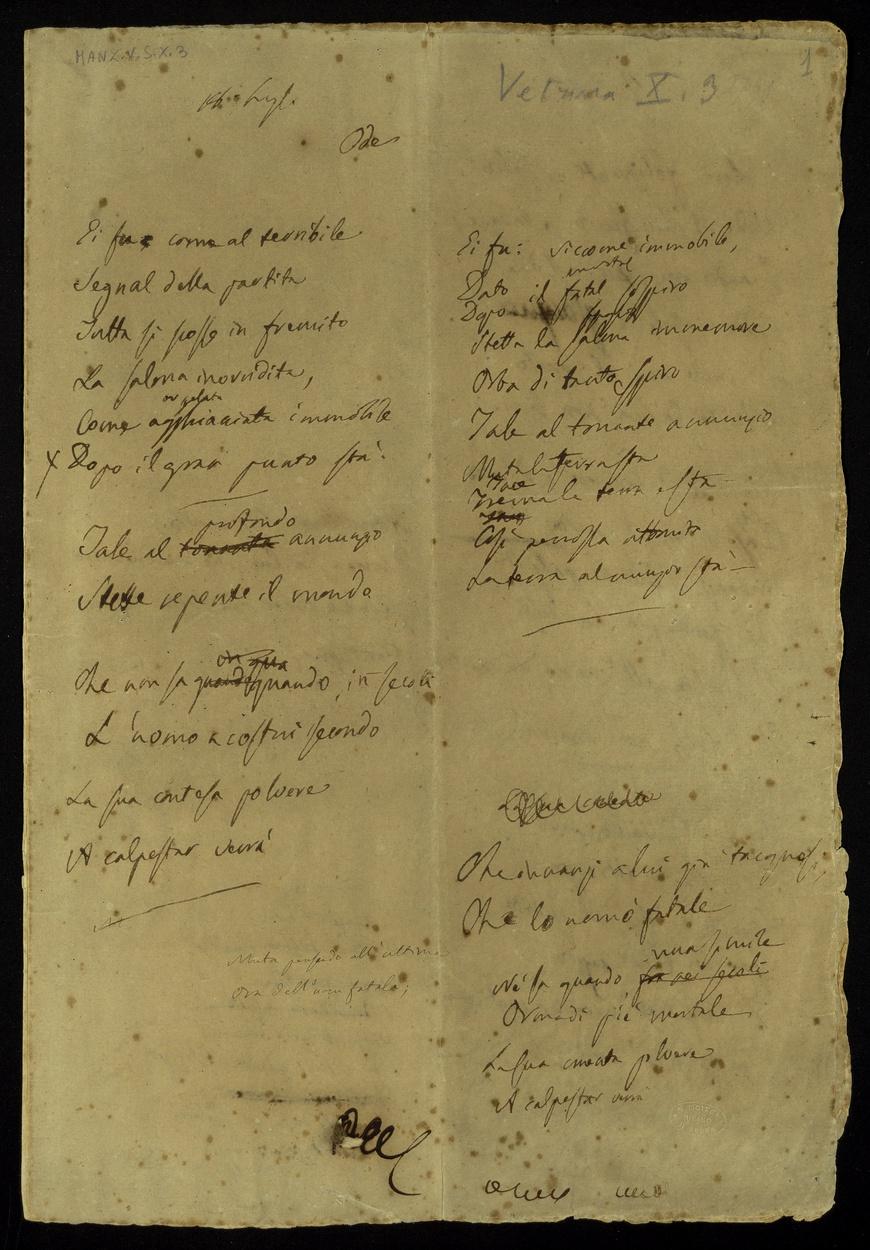 MANZ.V.S.X.3
1
Vetrina X. 3
Ode
Ei fu; come al terribile
Segnal della partita
Tutta si scosse in fremito
La salma inorridita,
or gelata
Come agghiacciata immobile
X Dopo il gran punto stà.
profondo
Tale al tonante annunzio
Stette repente il mondo
Che non sa quando quando, in secoli
L'uomo a costui secondo
La sua contesa polvere
A calpestar verrà
Muta pensando all'ultima
Ora dell'uom fatale;
Ei fu: siccome immobile,
mortal
Dato il fatal sospiro
Dopo
Stette la salma immemore
Orba di tanto spiro
Tale al tonante annunzio
Muta la terra sta
Tace
Trema la terra e sta
Così percossa attonita
La terra al nunzio stà
Che innanzi a lui già
Che lo nomò fatale
una simile
Nè sa quando fra sei secoli
Orma di piè mortale
La sua cruenta polvere
A calpestar verrà